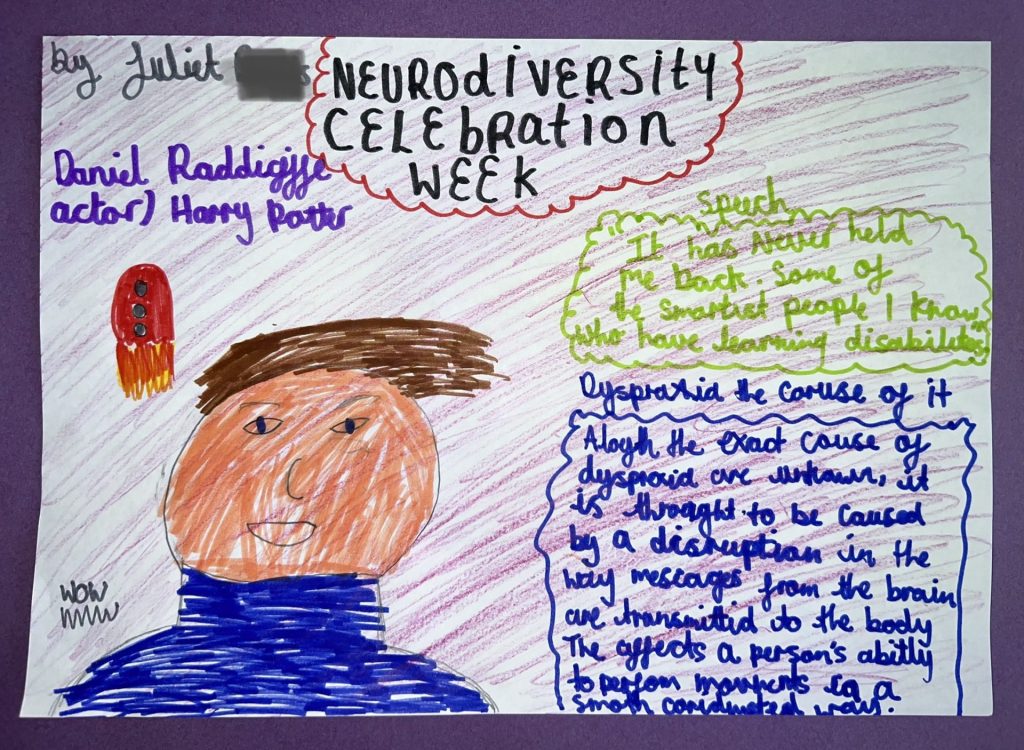 by Juliet
NEUROdiVERSity
CELEbRation
WEEk
Daniel Raddigjje
actor) Harry Potter
Speech
It has Never held
me back. Some of
the smartist people I know
who have learning disabilites
Dyspraxid the caruse of it
Aloyth the exact cause of
dyspraid are unkown, it
is throught to be caused
by a disruption in the
way messages from the brain
are transmittid to the body
The affects a person's abitly
to perfom movments in a
smoth cordinated way.
WOW